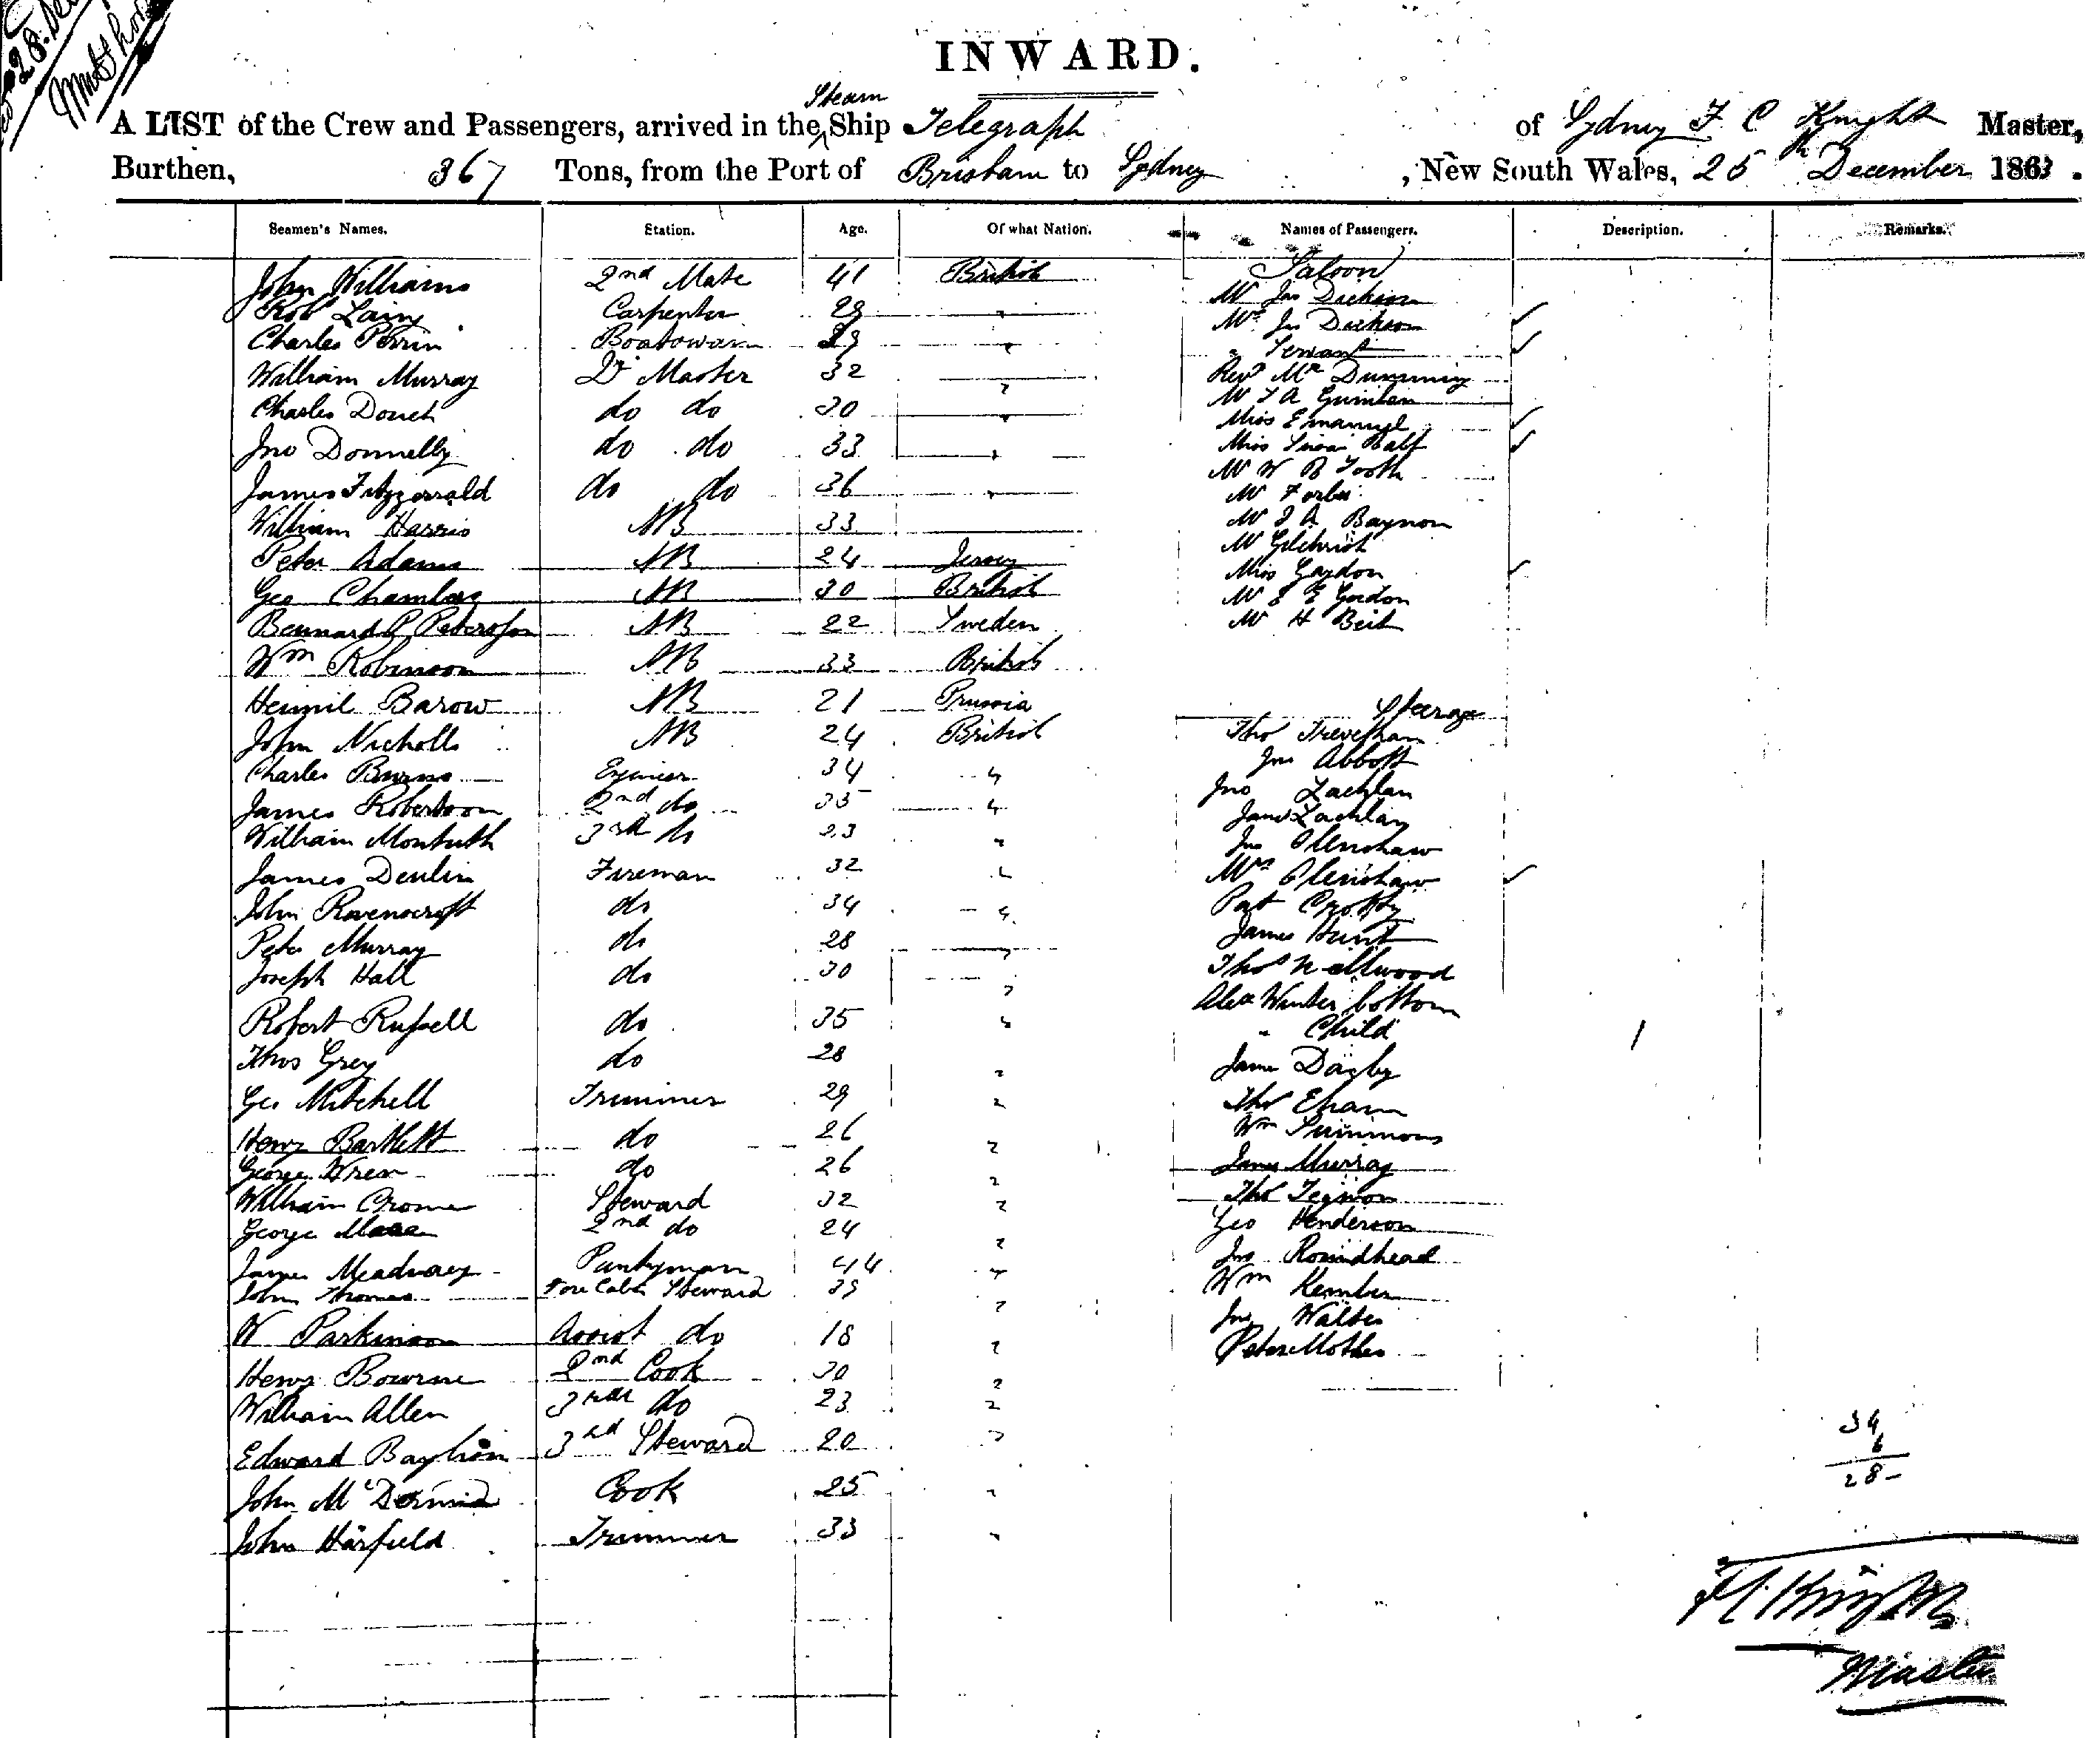 28
INWARD.
Steam
A LIST of the Crew and Passengers, arrived in the ^ Ship Telegraph of Sydney F C Knight Master,
Burthen, 367 Tons, from the Port of Brisbane to Sydney, New South Wales, 25th December 1863.
Seamen's Names. Station. Age. Of what Nation. Names of Passengers. Description. Remarks.
John Williams 2nd Mate 41 British
Robt Laing Carpenter 29 "
Charles Perrin Boatswain 29 "
William Murray Qr Master 32 "
Charles Douch do do 30 "
Jno Donnelly do do 33 "
James Fitzgerrald do do 36 "
William Harris AB 33
Peter Adams AB 24 Jersey
Geo Chambers AB 30 British
Bennard P Petersson AB 22 Sweden
Wm Robinson AB 33 British
Barow AB 21 Prussia
John Nicholls AB 24 British
Charles Burns 34 "
James Robertson 2nd do 35 "
William Montuth 3rd do 23 "
James Deulin Fireman 32 "
John Ravenscroft do 34 "
Peter Murray do 28 "
Joseph Hall do 30 "
Robert Russell do 35 "
Thos Grey do 28 "
Geo Mitchell Trimmer 29 "
Henry Bartlett do 26 "
George Wren do 26 "
William Cromer Steward 32 "
George 2nd do 24 "
James Meadway Pantryman 44 "
John Thomas Fore Cabin Steward 39 "
W Parkinson Assist do 18 "
Henry Bourne 2nd Cook 30 "
William Allen 3rd do 23 "
Edward 3rd Steward 20 "
John McDermid Cook 25 "
John Harfield Trimmer 33 "
Saloon
Mr Jas Dickson
Mrs Jas Dickson
" Servant
Revd Mr Dunning
Mr Quinlan
Miss Emanuel
Miss Ralf
Mr W B Tooth
Mr Forbes
Mr J A Baynon
Mr Gilchrist
Miss Gordon
Mr E Gordon
Mr H Beit
Steerage
Thos Trevethan
Jno Abbott
Jno Lachlan
Jane Lachlan
Jno Olenshaw
Mrs Olenshaw
Pat Crotty
James Hunt
Thos Wellwood
Alex Winterbottom
" Child 1
James Dagby
Thos Eham
Wm Simmons
James Murray
Thos
Geo Henderson
Jno Roundhead
Wm Kember
Jno Walter
Peter Mother
34
6
28
F C Knight
Master